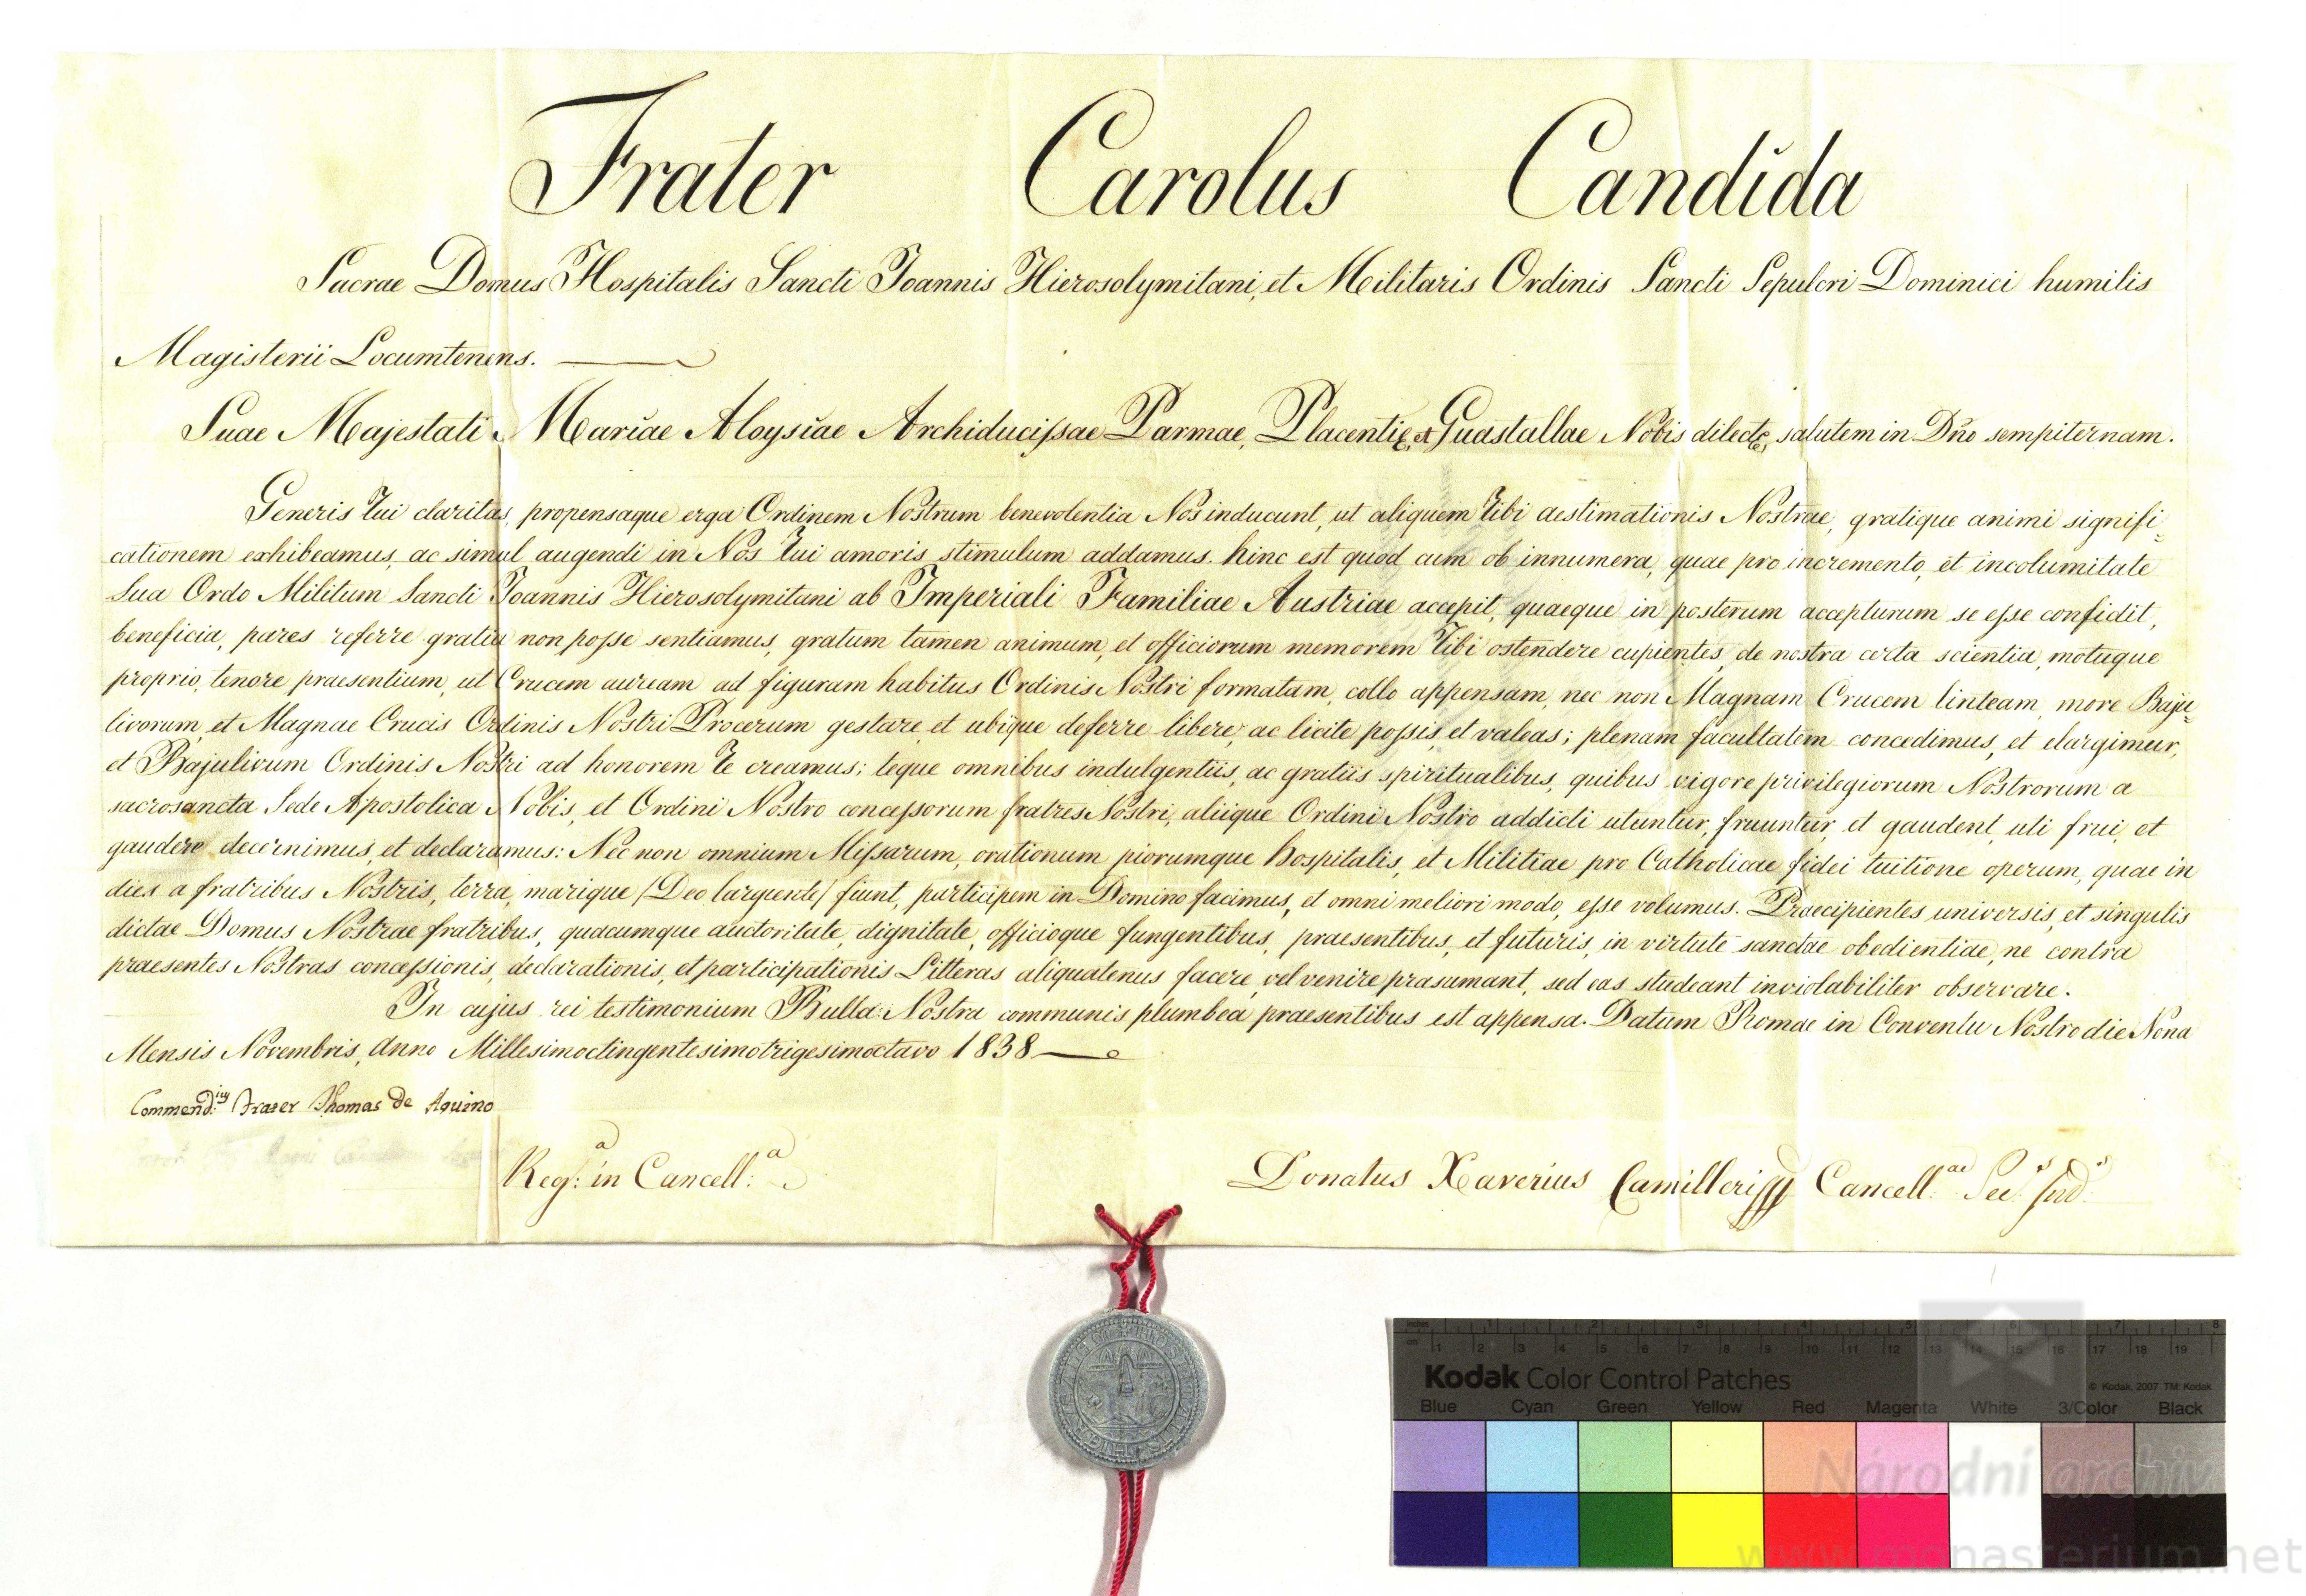 Frater Carolus Candida
Sacrae Domus Hospitalis Sancti Joannis Hierosolymitani, et Militaris Ordinis Sancti Sepulcri Dominici humilis
Magisterii Locumtenens.
Suae Majestati Mariae Aloysiae Archiducissae Parmae, Placentię, et Guastallae Nobis dilectę, salutem in Dño sempiternam.
Generis tui claritas, propensaque erga Ordinem Nostrum benevolentia Nos inducunt, ut aliquem tibi aestimationis Nostrae, gratique animi signifi-
cationem exhibeamus, ac simul augendi in Nos tui amoris stimulum addamus. hinc est quod cum ob innumera, quae pro incremento, et incolumitate
sua Ordo Militum Sancti Joannis Hierosolymitani ab Imperiali Familiae Austriae accepit, quaeque in posterum accepturum se esse confidit,
beneficia, pares referre gratia non posse sentiamus, gratum tamen animum, et officiorum memorem tibi ostendere cupientes, de nostra certa scientia, motuque
proprio, tenore praesentium, ut Crucem auream ad figuram habitus Ordinis Nostri formatam, collo appensam, nec non Magnam Crucem linteam, more Baju-
livorum, et Magnae Crucis Ordinis Nostri Procerum gestare, et ubique deferre libere, ac licite possis, et valeas; plenam facultatem concedimus, et elargimur,
et Bajulivum Ordinis Nostri ad honorem te creamus; teque omnibus indulgentiis, ac gratiis spiritualibus, quibus vigore privilegiorum Nostrorum a
sacrosancta Sede Apostolica Nobis, et Ordini Nostro concessorum fratres Nostri, aliique Ordini Nostro addicti utuntur, fruuntur, et gaudent, uti frui, et
gaudere decernimus, et declaramus: Nec non omnium Missarum, orationum piorumque hospitalis, et Militiae pro Catholicae fidei tuitione operum, quae in
dies a fratribus Nostris, terra, marique (Deo largiente) fiunt, participem in Domino facimus, et omni meliori modo, esse volumus. Praecipientes universis, et singulis
dictae Domus Nostrae fratribus, quacumque auctoritate, dignitate, officioque fungentibus, praesentibus, et futuris, in virtute sanctae obedientiae, ne contra
praesentes Nostras concessionis, declarationis, et participationis Litteras aliquatenus facere, vel venire prasumant, sed eas studeant inviolabiliter observare.
In cujus rei testimonium Bulla Nostra communis plumbea praesentibus est appensa. Datum Romae in Conventu Nostro die Nona
Mensis Novembris, Anno Millesimoctingentesimotrigesimoctavo 1838
Commend.ius Frater Thomas de Aquino
Reg.a in Cancell.a
Donatus Xaverius Camilleri Cancell.ae
inches 1 2 3 4 5 6 7 8
cm 1 2 3 4 5 6 7 8 9 10 11 12 13 14 15 16 17 18 19
Kodak Color Control Patches
© Kodak, 2007 TM: Kodak
Blue Cyan Green Yellow Red Magenta White 3/Color Black
Národní archiv
www.monasterium.net